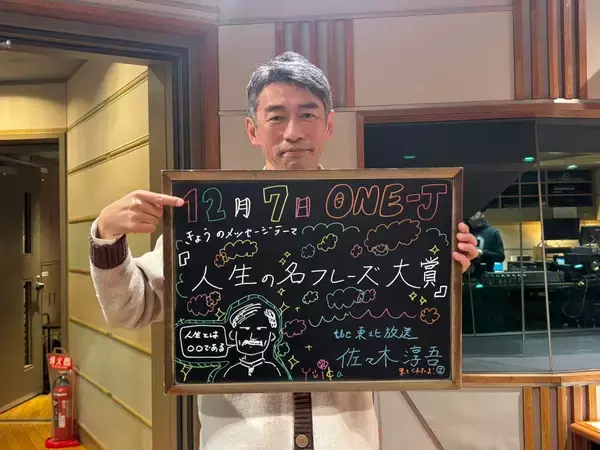 12月7日 ONE-J
きょうのメッセージテーマ
『人生の名フレーズ大賞』
人生とは
〇〇である
tbc東北放送
佐々木淳吾
消火器